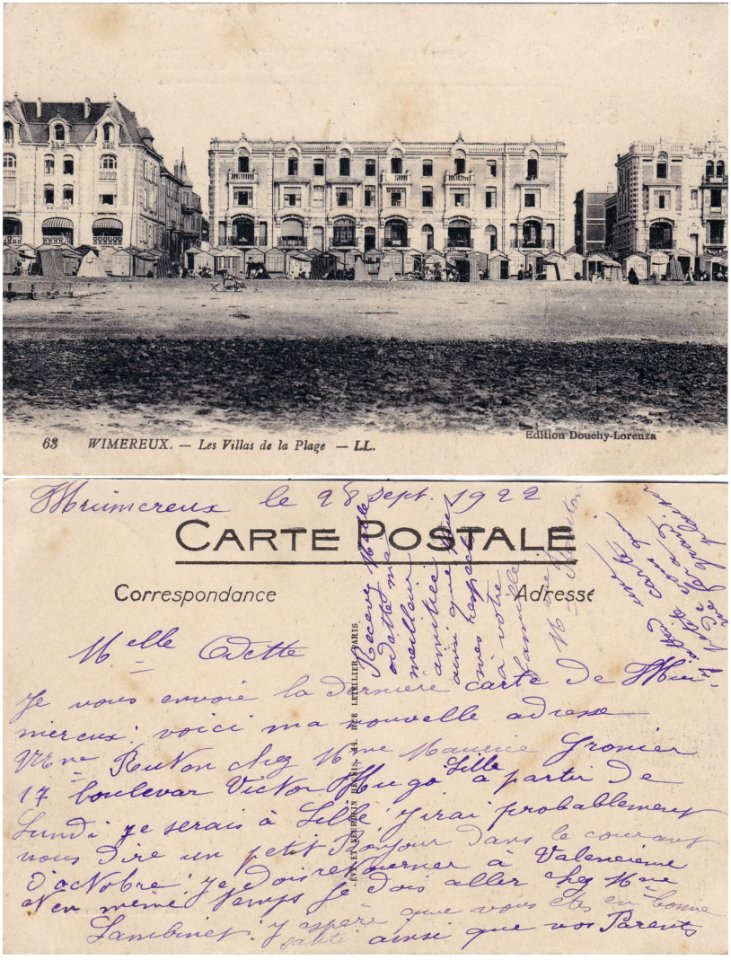 63 WIMEREUX. — Les Villas de la Plage — LL.
Edition Douchy-Lorenza
le 28 sept. 1922
CARTE POSTALE
Correspondance
Adresse
Melle Odette
Je vous envoie la dernière carte de Wimereux
mereux. voici ma nouvelle adresse
chez Mme Maurice Gronier
17 boulevar Victor Hugo Lille à partir de
Lundi je serais à Lille j'irai probablement
vous dire un petit Bonjour dans le courant
d'octobre. je dois retourner à Valencienne
en meme temps je dois aller chez Mme
Lambinet. j'espère que vous êtes en bonne
santé ainsi que vos Parents
Recevez Melle
odette ma
meilleur
amitiée
ainsi que tous
mes respects
à votre
famille
Mme
PARIS